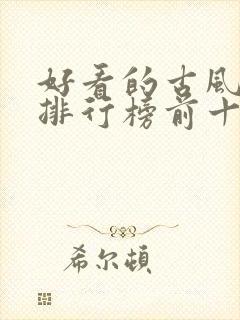 好看的古风
排行榜前十
希尔顿